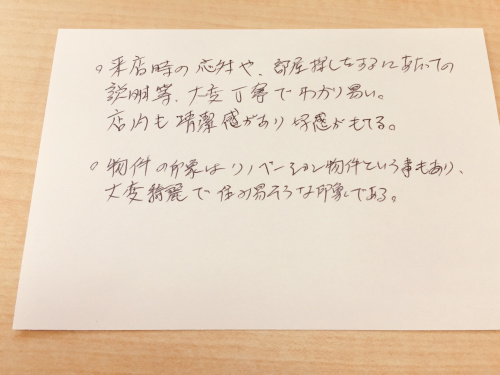 。来店時の応対や、部屋探しをするにあたっての
説明等、大変丁寧でわかり易い。
店内も清潔感があり好感がもてる。
。物件の印象はリノベーション物件という事もあり、
大変綺麗で住み易そうな印象である。